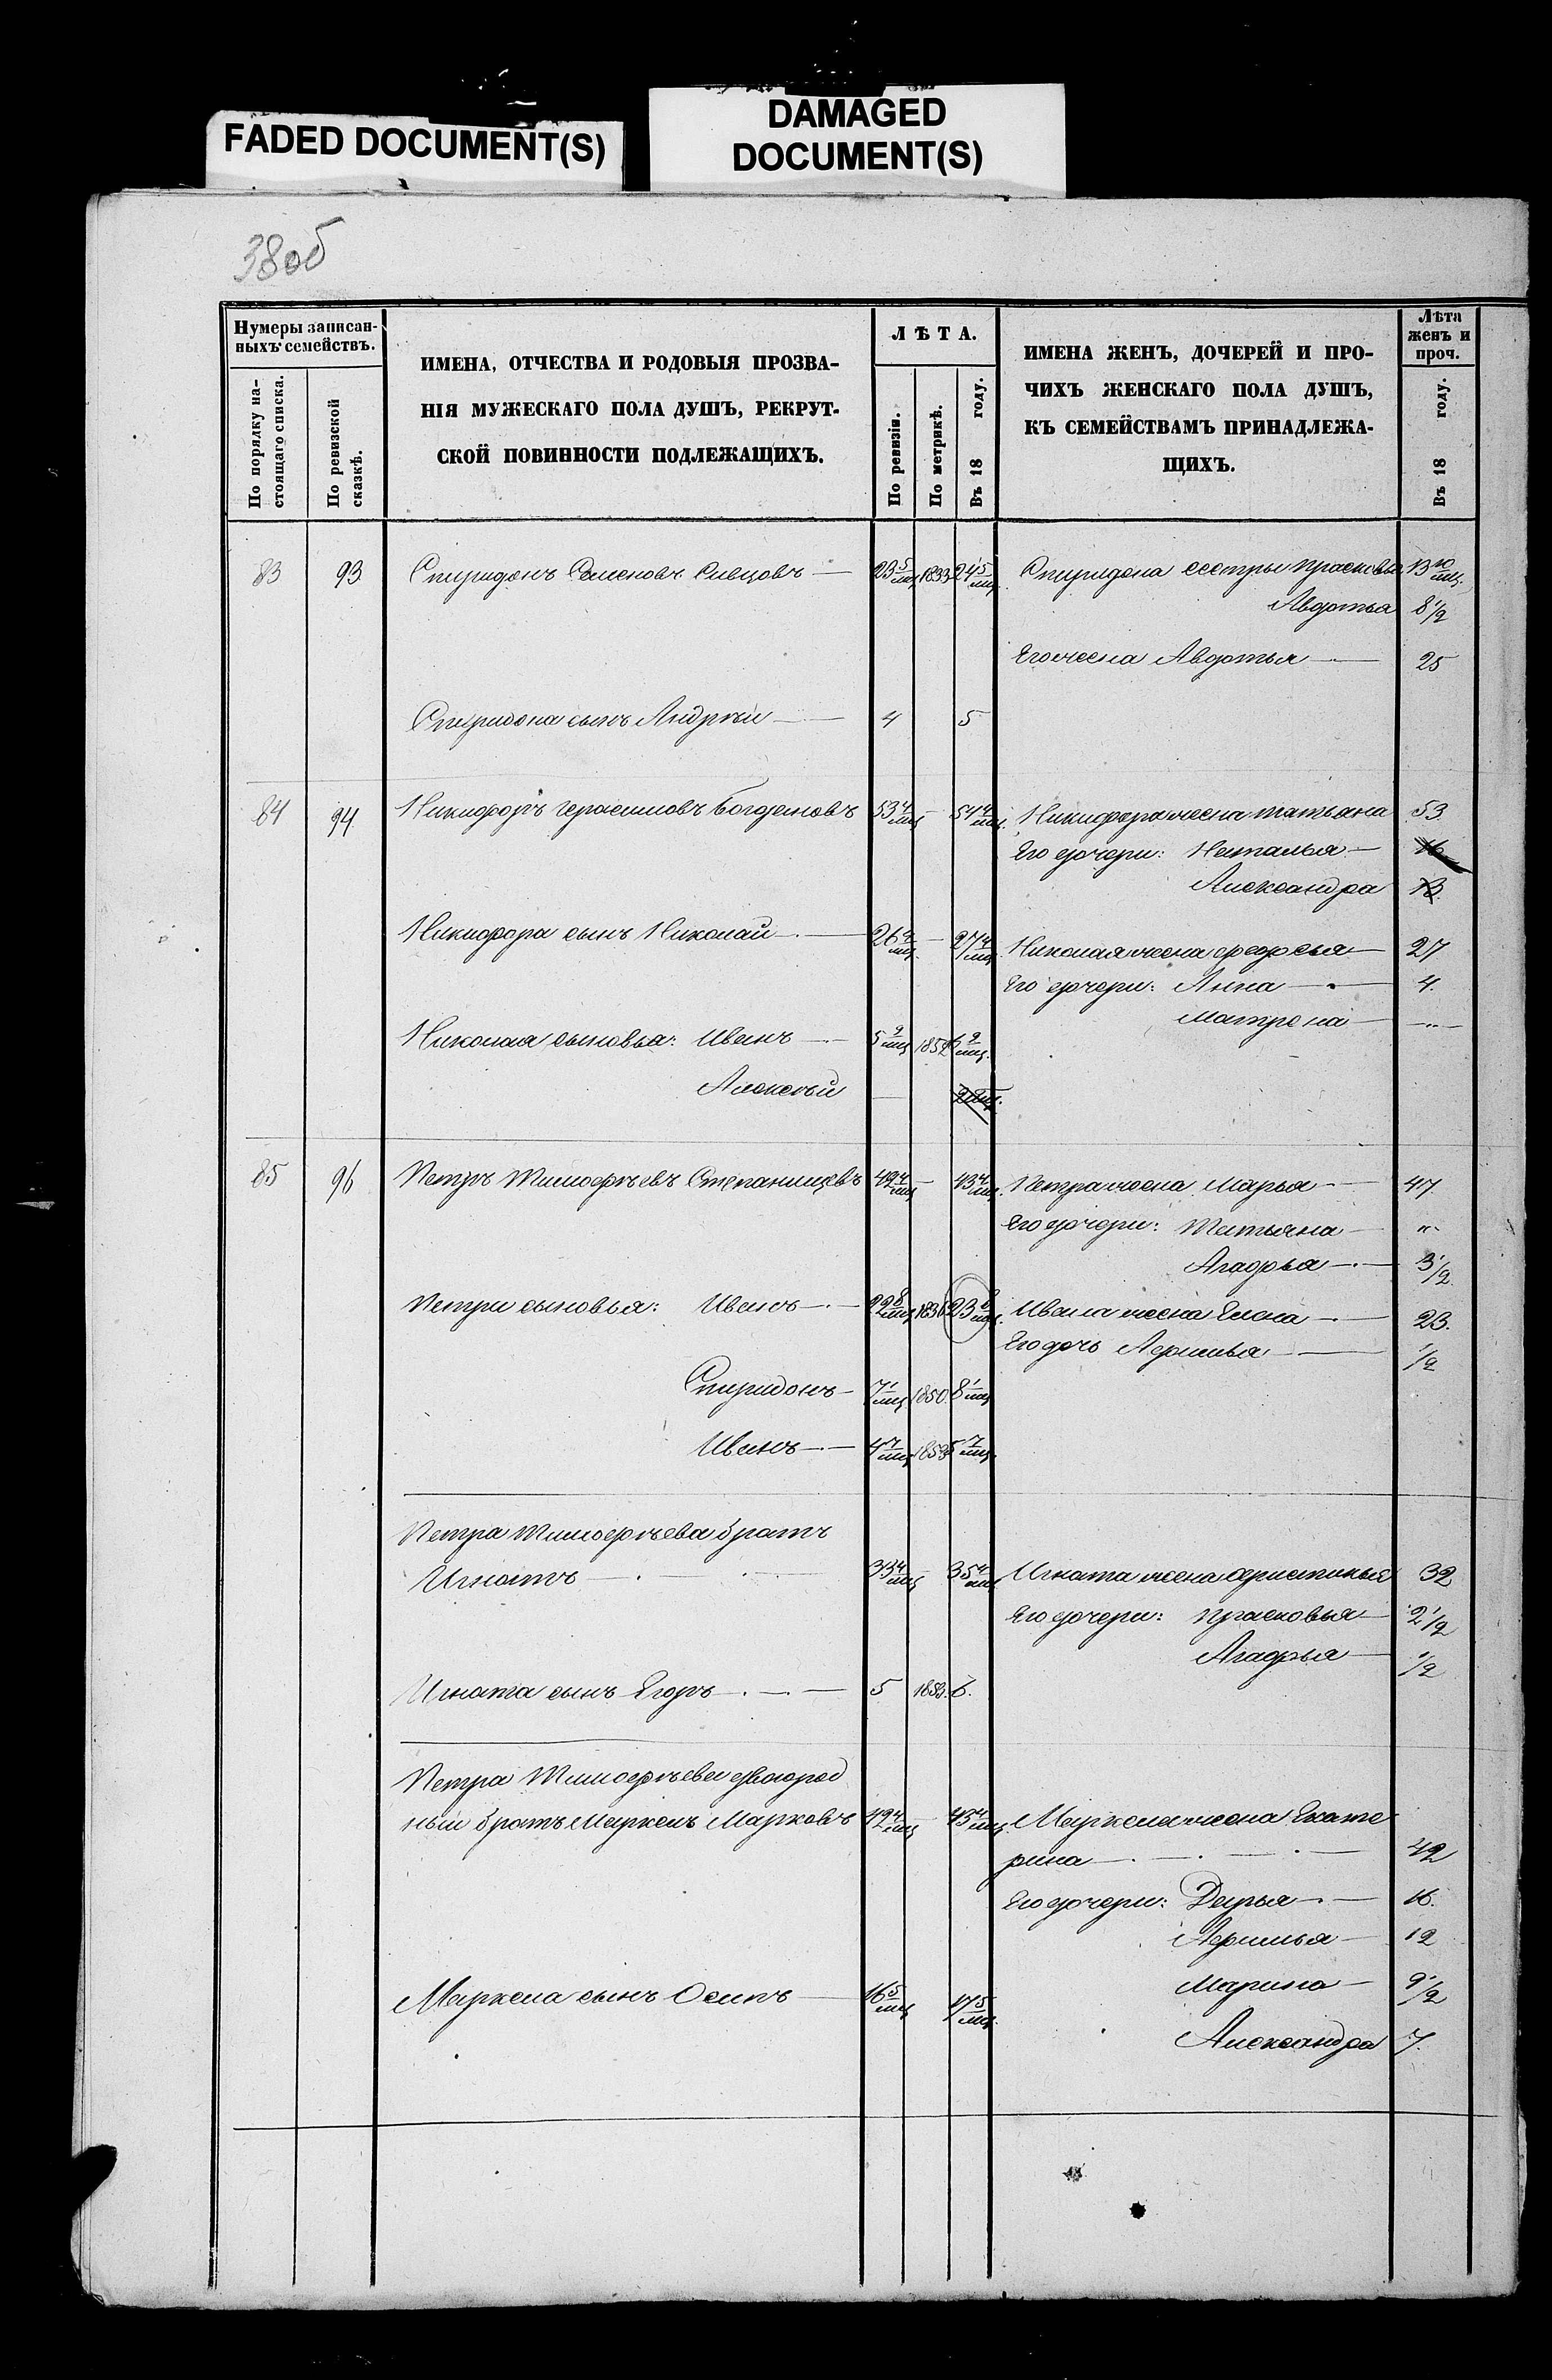 FADED DOCUMENT(S)
DAMAGED
DOCUMENT(S)
38об
Нумеры записан-
ныхъ семействъ.
По порядку на-
стоящаго списка.
По ревизской
сказкѣ.
ИМЕНА, ОТЧЕСТВА И РОДОВЫЯ ПРОЗВА-
НІЯ МУЖЕСКАГО ПОЛА ДУШЪ, РЕКРУТ-
СКОЙ ПОВИННОСТИ ПОДЛЕЖАЩИХЪ.
ЛѢТА.
По ревизіи.
По метрикѣ.
Въ 18 году.
ИМЕНА ЖЕНЪ, ДОЧЕРЕЙ И ПРО-
ЧИХЪ ЖЕНСКАГО ПОЛА ДУШЪ,
КЪ СЕМЕЙСТВАМЪ ПРИНАДЛЕЖА-
ЩИХЪ.
Лѣта
женъ и
проч.
Въ 18 году.
83 93 Спиридонъ Семеновъ Сивцовъ — 23 5/мц 1833 24 5/мц Спиридона сестры Прасковья 13 10/мц.
Авдотья 8 1/2
Его жена Авдотья — 25
Спиридона сынъ Андрѣй — 4 5
84 94 Никифоръ Герасимовъ Богдановъ 53 4/мц — 54 4/мц. Никифора жена Татьяна 53
Его дочери: Наталья — 16
Александра 13
Никифора сынъ Николай — 26 4/мц — 27 4/мц Николая жена Федосья — 27
Его дочери: Анна — 4.
Матрена —
Николая сыновья: Иванъ — 5 9/мц 1852 6 9/мц.
Алексѣй —
85 96 Петръ Тимофѣевъ Степанищевъ 42 4/мц — 43 4/мц. Петра жена Марья — 47
Его дочери: Татьяна — "
Агафья — 3 1/2
Петра сыновья: Иванъ — 22 8/мц 1836 23 8/мц. Ивана жена Елена — 23.
Его дочь Аксинья — 1/2
Спиридонъ — 7 1/мц 1850 8 1/мц
Иванъ — 4 7/мц 1853 5 7/мц.
Петра Тимофѣева братъ
Игнатъ — 33 4/мц — 35 4/мц Игната жена Христинья 32
Его дочери: Прасковья — 2 1/2
Агафья — 1/2
Игната сынъ Егоръ — 5 1853. 6.
Петра Тимофѣева двоюрод
ный братъ Маркелъ Марковъ 42 4/мц — 43 4/мц. Маркела жена Екате
рина — 42
Его дочери: Дарья — 16.
Аксинья — 12
Марина — 9 1/2
Маркела сынъ Осипъ — 16 5/мц 17 5/мц
Александра 7.